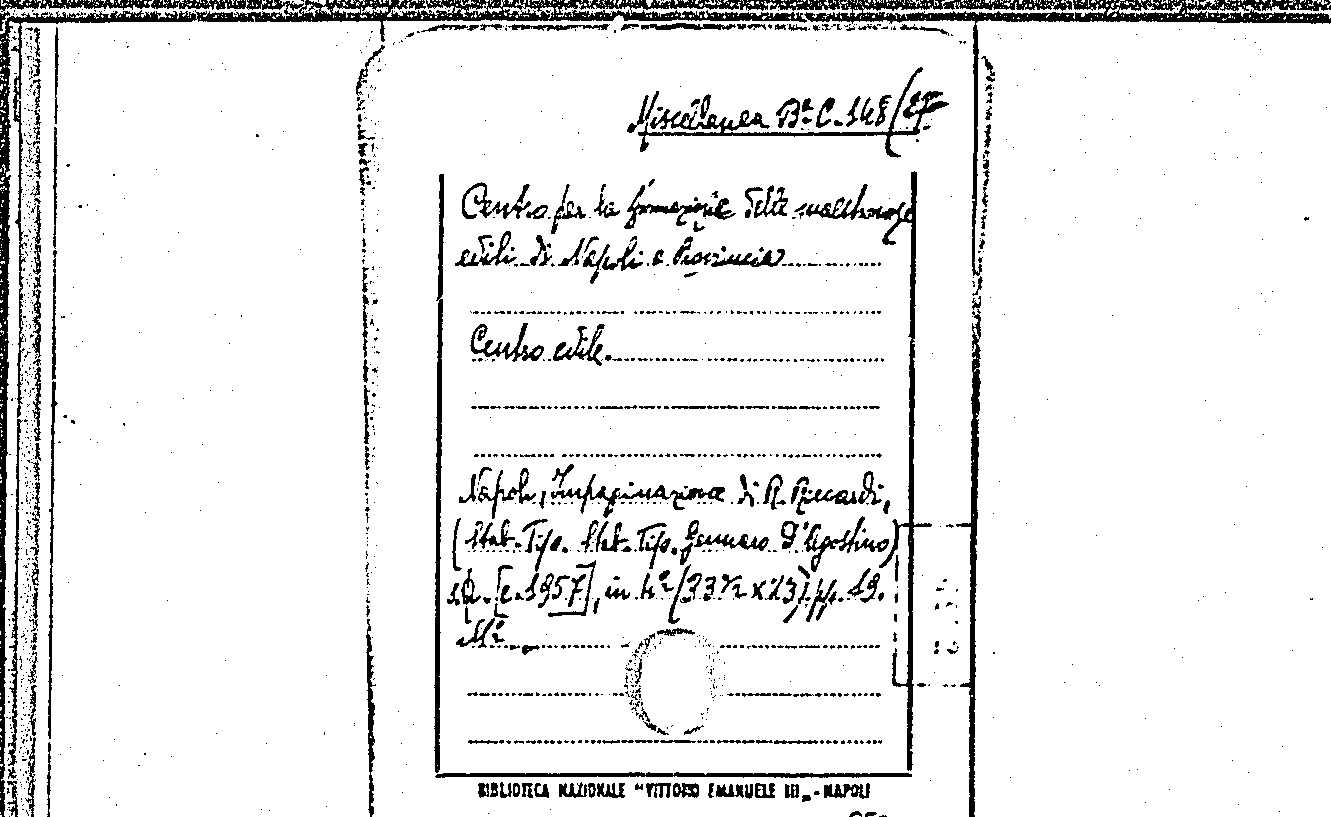 Miscellanea Bª C. 148/(27
Centro per la formazione delle maestranze
edili di Napoli e Provincia
Centro edile.
Napoli, Impaginazione di R. Riccardi,
(Stab. Tip. Stab. Tip. Gennaro D'Agostino)
s.d. [c. 1957], in 4º (33½ x 23) pp. 19.
BIBLIOTECA NAZIONALE "VITTORIO EMANUELE III„ - NAPOLI